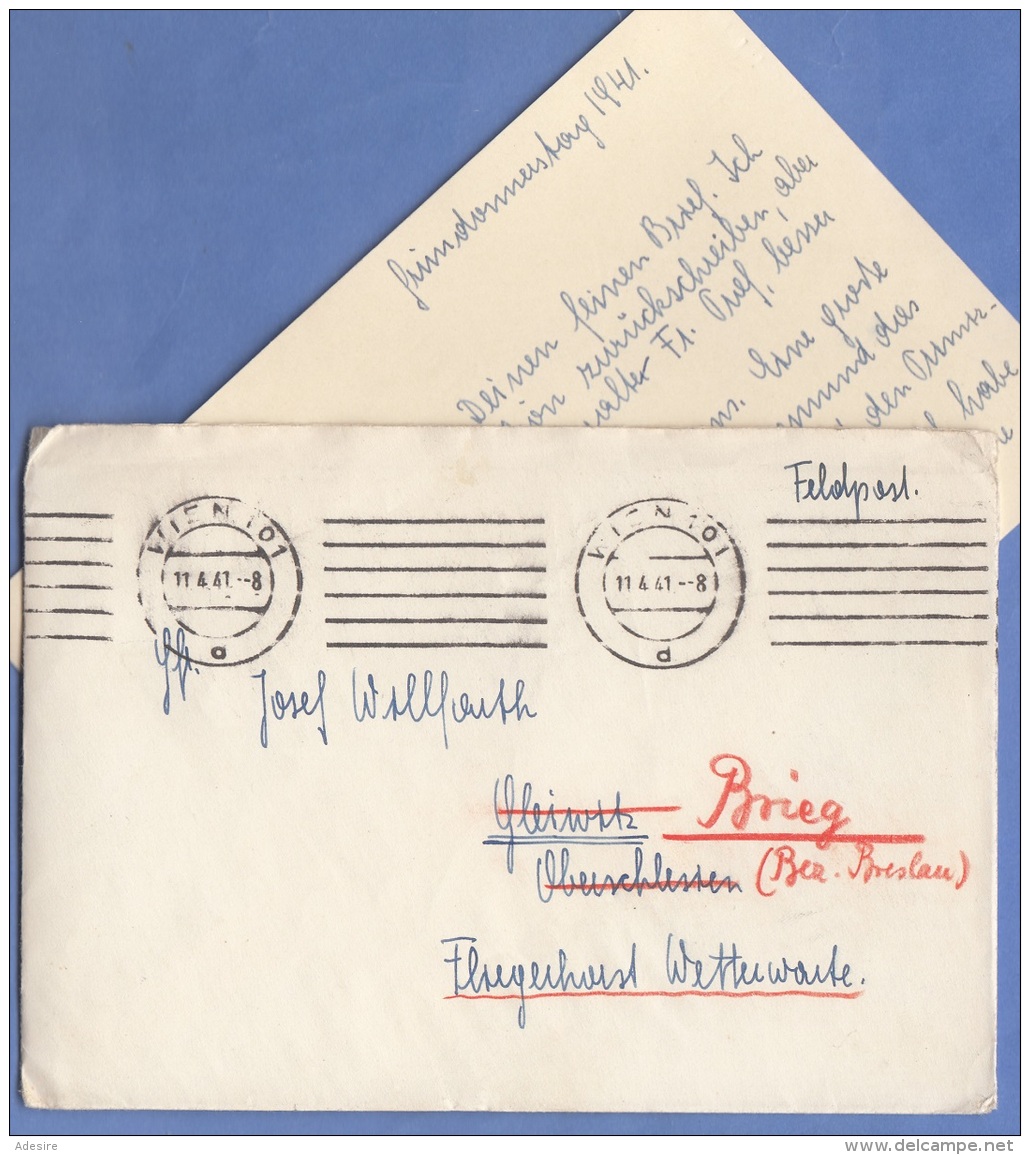 Gründonnerstag 1941.
Deinen feinen Brief. Ich
zurückschreiben, aber
Fr. Prof. besser
Eine große
und das
den
habe
Feldpost.
WIEN 101 WIEN 101
11.4.41.--8 11.4.41.--8
d d
Gfr.
Josef Wollfarth
Gleiwitz Brieg
Oberschlesien (Bez. Breslau)
Fliegerhorst Wetterwarte.
Adesire
www.delcampe.net